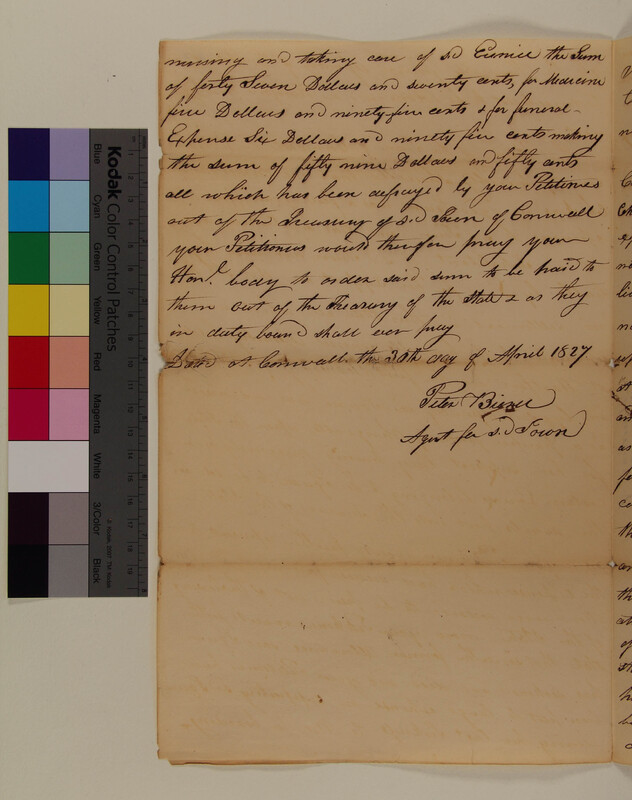 nursing and taking care of s.d Eunice the Sum
of forty Seven Dollars and seventy cents, for Medicine
five Dollars and ninety-five cents & for funeral
Expense Six Dollars and ninety five cents making
the sum of fifty nine Dollars and fifty cents
all which has been defrayed by your Petitioners
out of the Treasury of s.d Town of Cornwall
your Petitioners would therefore pray your
Hon.l body to order said sum to be paid to
them out of the Treasury of the State & as they
in duty bound shall ever pray
Dated at Cornwall the 30th day of April 1827
Peter Bierce
Agent for s.d Town
Kodak Color Control Patches
Blue
Cyan
Green
Yellow
Red
Magenta
White
3/Color
Black